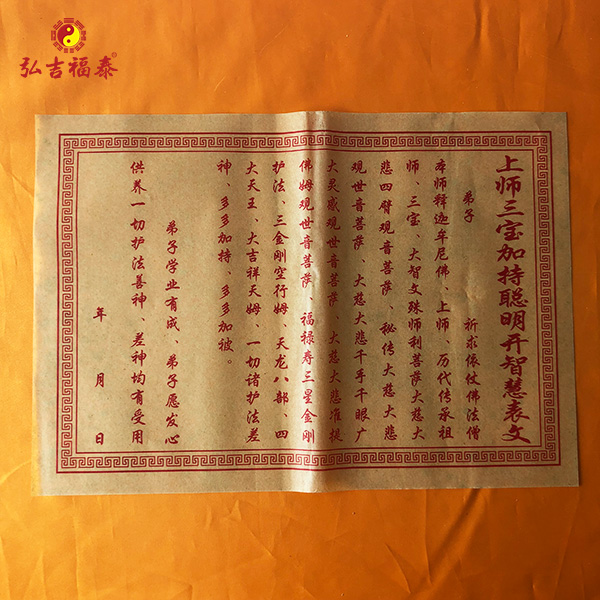 弘吉福泰®
上师三宝加持聪明开智慧表文
弟子 祈求依仗佛法僧
本师释迦牟尼佛、上师、历代传承祖
师、三宝、大智文殊师利菩萨大慈大
悲四臂观音菩萨、秘传大慈大悲
观世音菩萨、大慈大悲千手千眼广
大灵感观世音菩萨、大慈大悲准提
佛姆观世音菩萨、福禄寿三星金刚
护法、三金刚空行姆、天龙八部、四
大天王、大吉祥天姆、一切诸护法差
神、多多加持、多多加被。
弟子学业有成、弟子愿发心
供养一切护法善神、差神均有受用
年 月 日